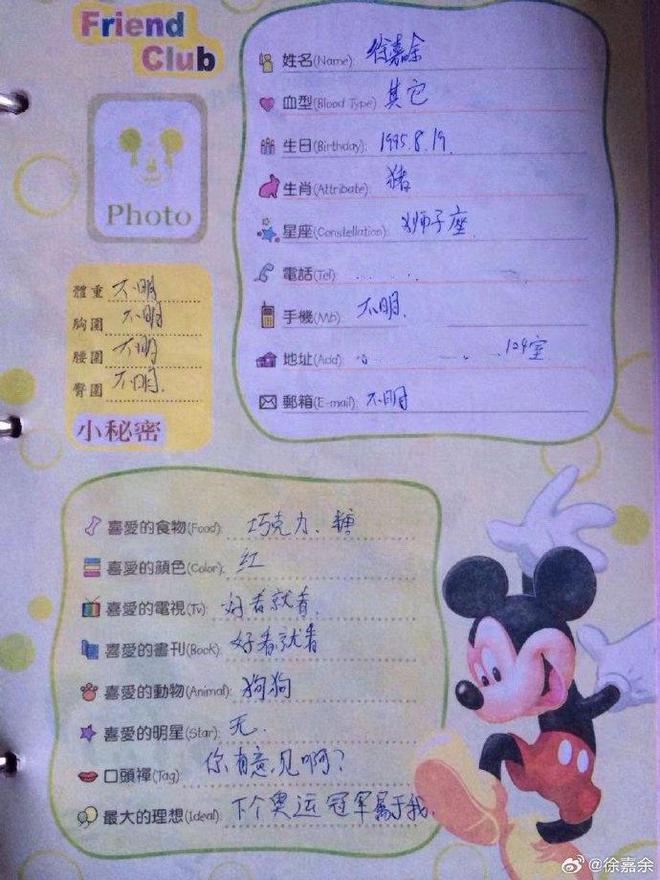 Friend
Club
Photo
姓名(Name): 徐嘉余
血型(Blood Type) 其它
生日(Birthday): 1995.8.19.
生肖(Attribate): 猪
星座(Constellation): 狮子座
電話(Tel)
手機(Mb) 不明.
地址(Add) 124室
郵箱(E-mail): 不明
體重 不明
胸圍 不明
腰圍 不明
臀圍 不明.
小秘密
喜愛的食物(Food): 巧克力、糖
喜愛的顏色(Color): 红
喜愛的電視(Tv): 好看就看.
喜愛的書刊(Book): 好看就看
喜愛的動物(Animal): 狗狗
喜愛的明星(Star): 无.
口頭禪(Tag): 你有意见啊?
最大的理想(Ideal): 下个奥运冠军属于我.
@徐嘉余